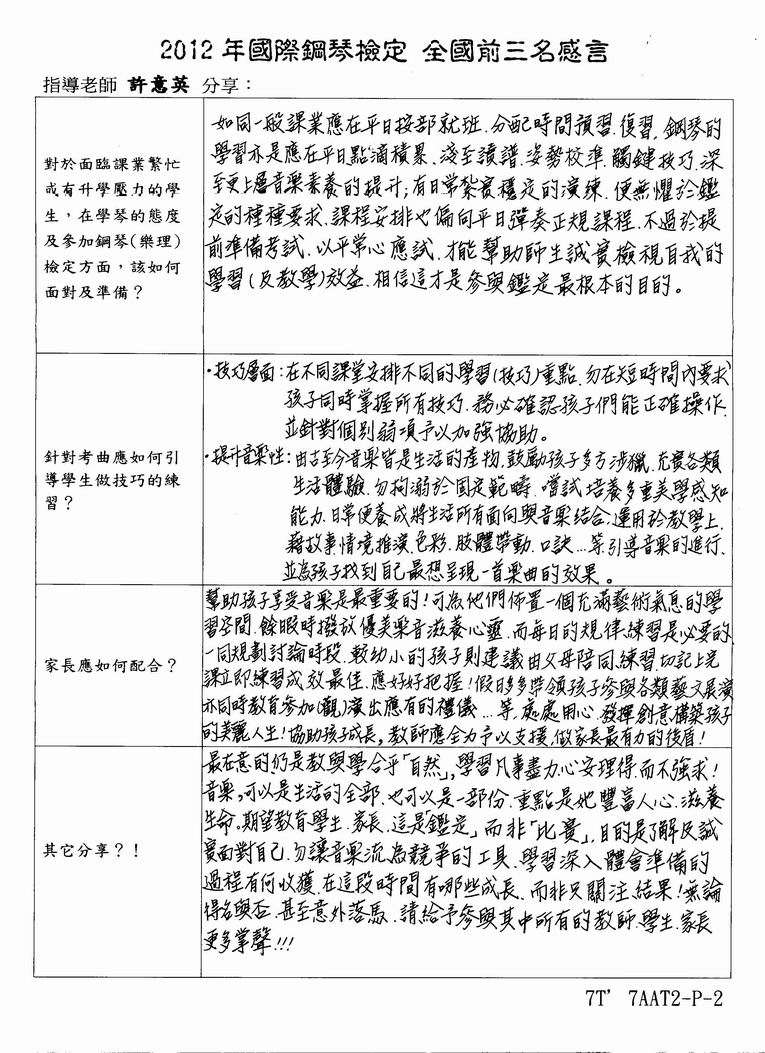 2012 年國際鋼琴檢定 全國前三名感言
指導老師 許意英 分享：
對於面臨課業繁忙
或有升學壓力的學
生，在學琴的態度
及參加鋼琴(樂理)
檢定方面，該如何
面對及準備？
如同一般課業應在平日按部就班、分配時間預習、復習，鋼琴的
學習亦是應在平日點滴積累、淺至讀譜、姿勢校準、觸鍵技巧、深
至更上層音樂素養的提升；有日常紮實穩定的演練，便無懼於鑑
定的種種要求、課程安排也偏向平日彈奏正規課程、不過於提
前準備考試、以平常心應試、才能幫助師生誠實檢視自我的
學習(及教學)效益、相信這才是參與鑑定最根本的目的。
針對考曲應如何引
導學生做技巧的練
習？
·技巧層面：在不同課堂安排不同的學習(技巧)重點、勿在短時間內要求
孩子同時掌握所有技巧、務必確認孩子們能正確操作、
並針對個別弱項予以加強協助。
·提升音樂性：由古至今音樂皆是生活的產物，鼓勵孩子多方涉獵、充實各類
生活體驗、勿拘溺於固定範疇、嚐試培養多重美學感知
能力、日常便養成將生活所有面向與音樂結合；運用於教學上、
藉故事情境推演、色彩、肢體帶動、口訣…等引導音樂的進行、
並為孩子找到自己最想呈現一首樂曲的效果。
家長應如何配合？
幫助孩子享受音樂是最重要的！可為他們佈置一個充滿藝術氣息的學
習空間、餘暇時撥放優美樂音滋養心靈、而每日的規律練習是必要的、
一同規劃討論時段、較幼小的孩子則建議由父母陪同練習、切記上完
課立即練習成效最佳、應好好把握！假日多多帶領孩子參與各類藝文展演
亦同時教育參加(觀)演出應有的禮儀…等，處處用心、發揮創意構築孩子
的美麗人生！協助孩子成長，教師應全力予以支援，做家長最有力的後盾！
其它分享？！
最在意的仍是教與學合乎「自然」，學習凡事盡力、心安理得、而不強求！
音樂，可以是生活的全部、也可以是一部份、重點是她豐富人心、滋養
生命。期望教育學生、家長、這是「鑑定」而非「比賽」，目的是了解及誠
實面對自己、勿讓音樂流為競爭的工具、學習深入體會準備的
過程有何收獲、在這段時間有哪些成長、而非只關注結果！無論
得名與否、甚至意外落馬、請給予參與其中所有的教師、學生、家長
更多掌聲!!!
7T' 7AAT2-P-2